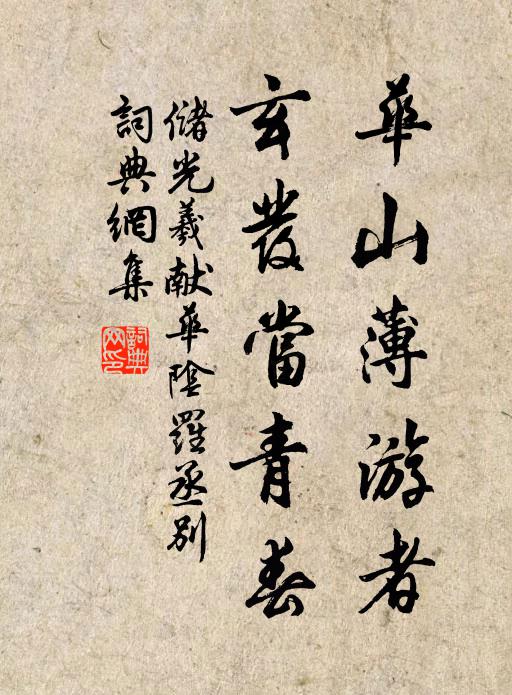 華山薄游者
玄發當青春
儲光羲献華陰羅丞別
詞典網集
詞典網印